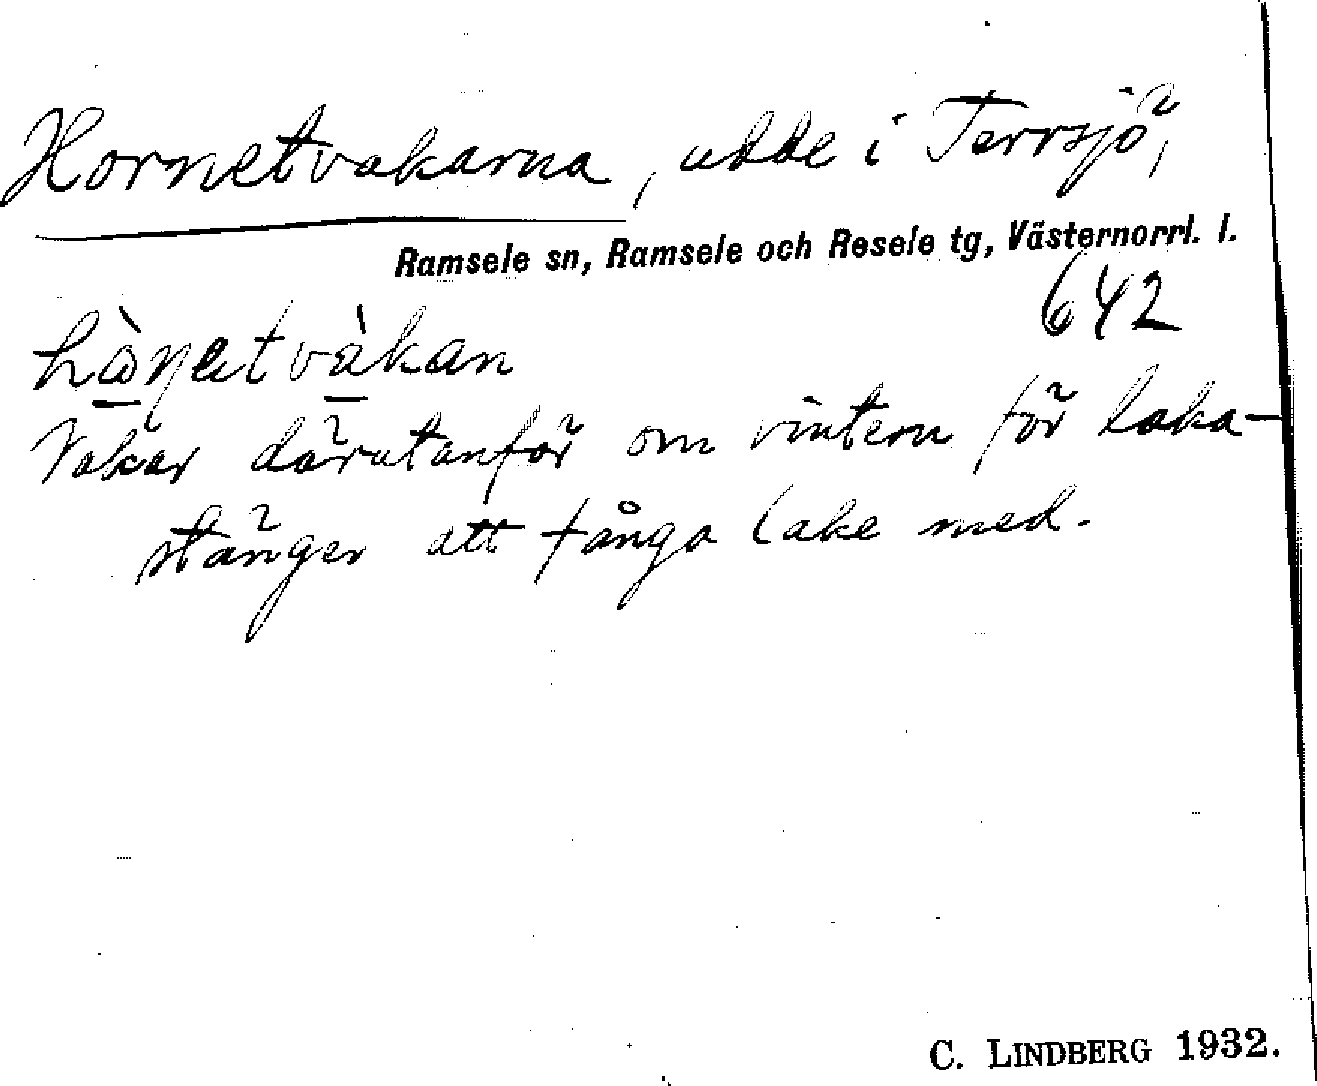 Hornetvakarna, udde i Terrsjö,
Ramsele sn, Ramsele och Resele tg, Västernorrl. l.
642
hą̀ŋetvàkan
Vakar därutanför om vintern för laka-
stänger att fånga lake med.
C. LINDBERG 1932.